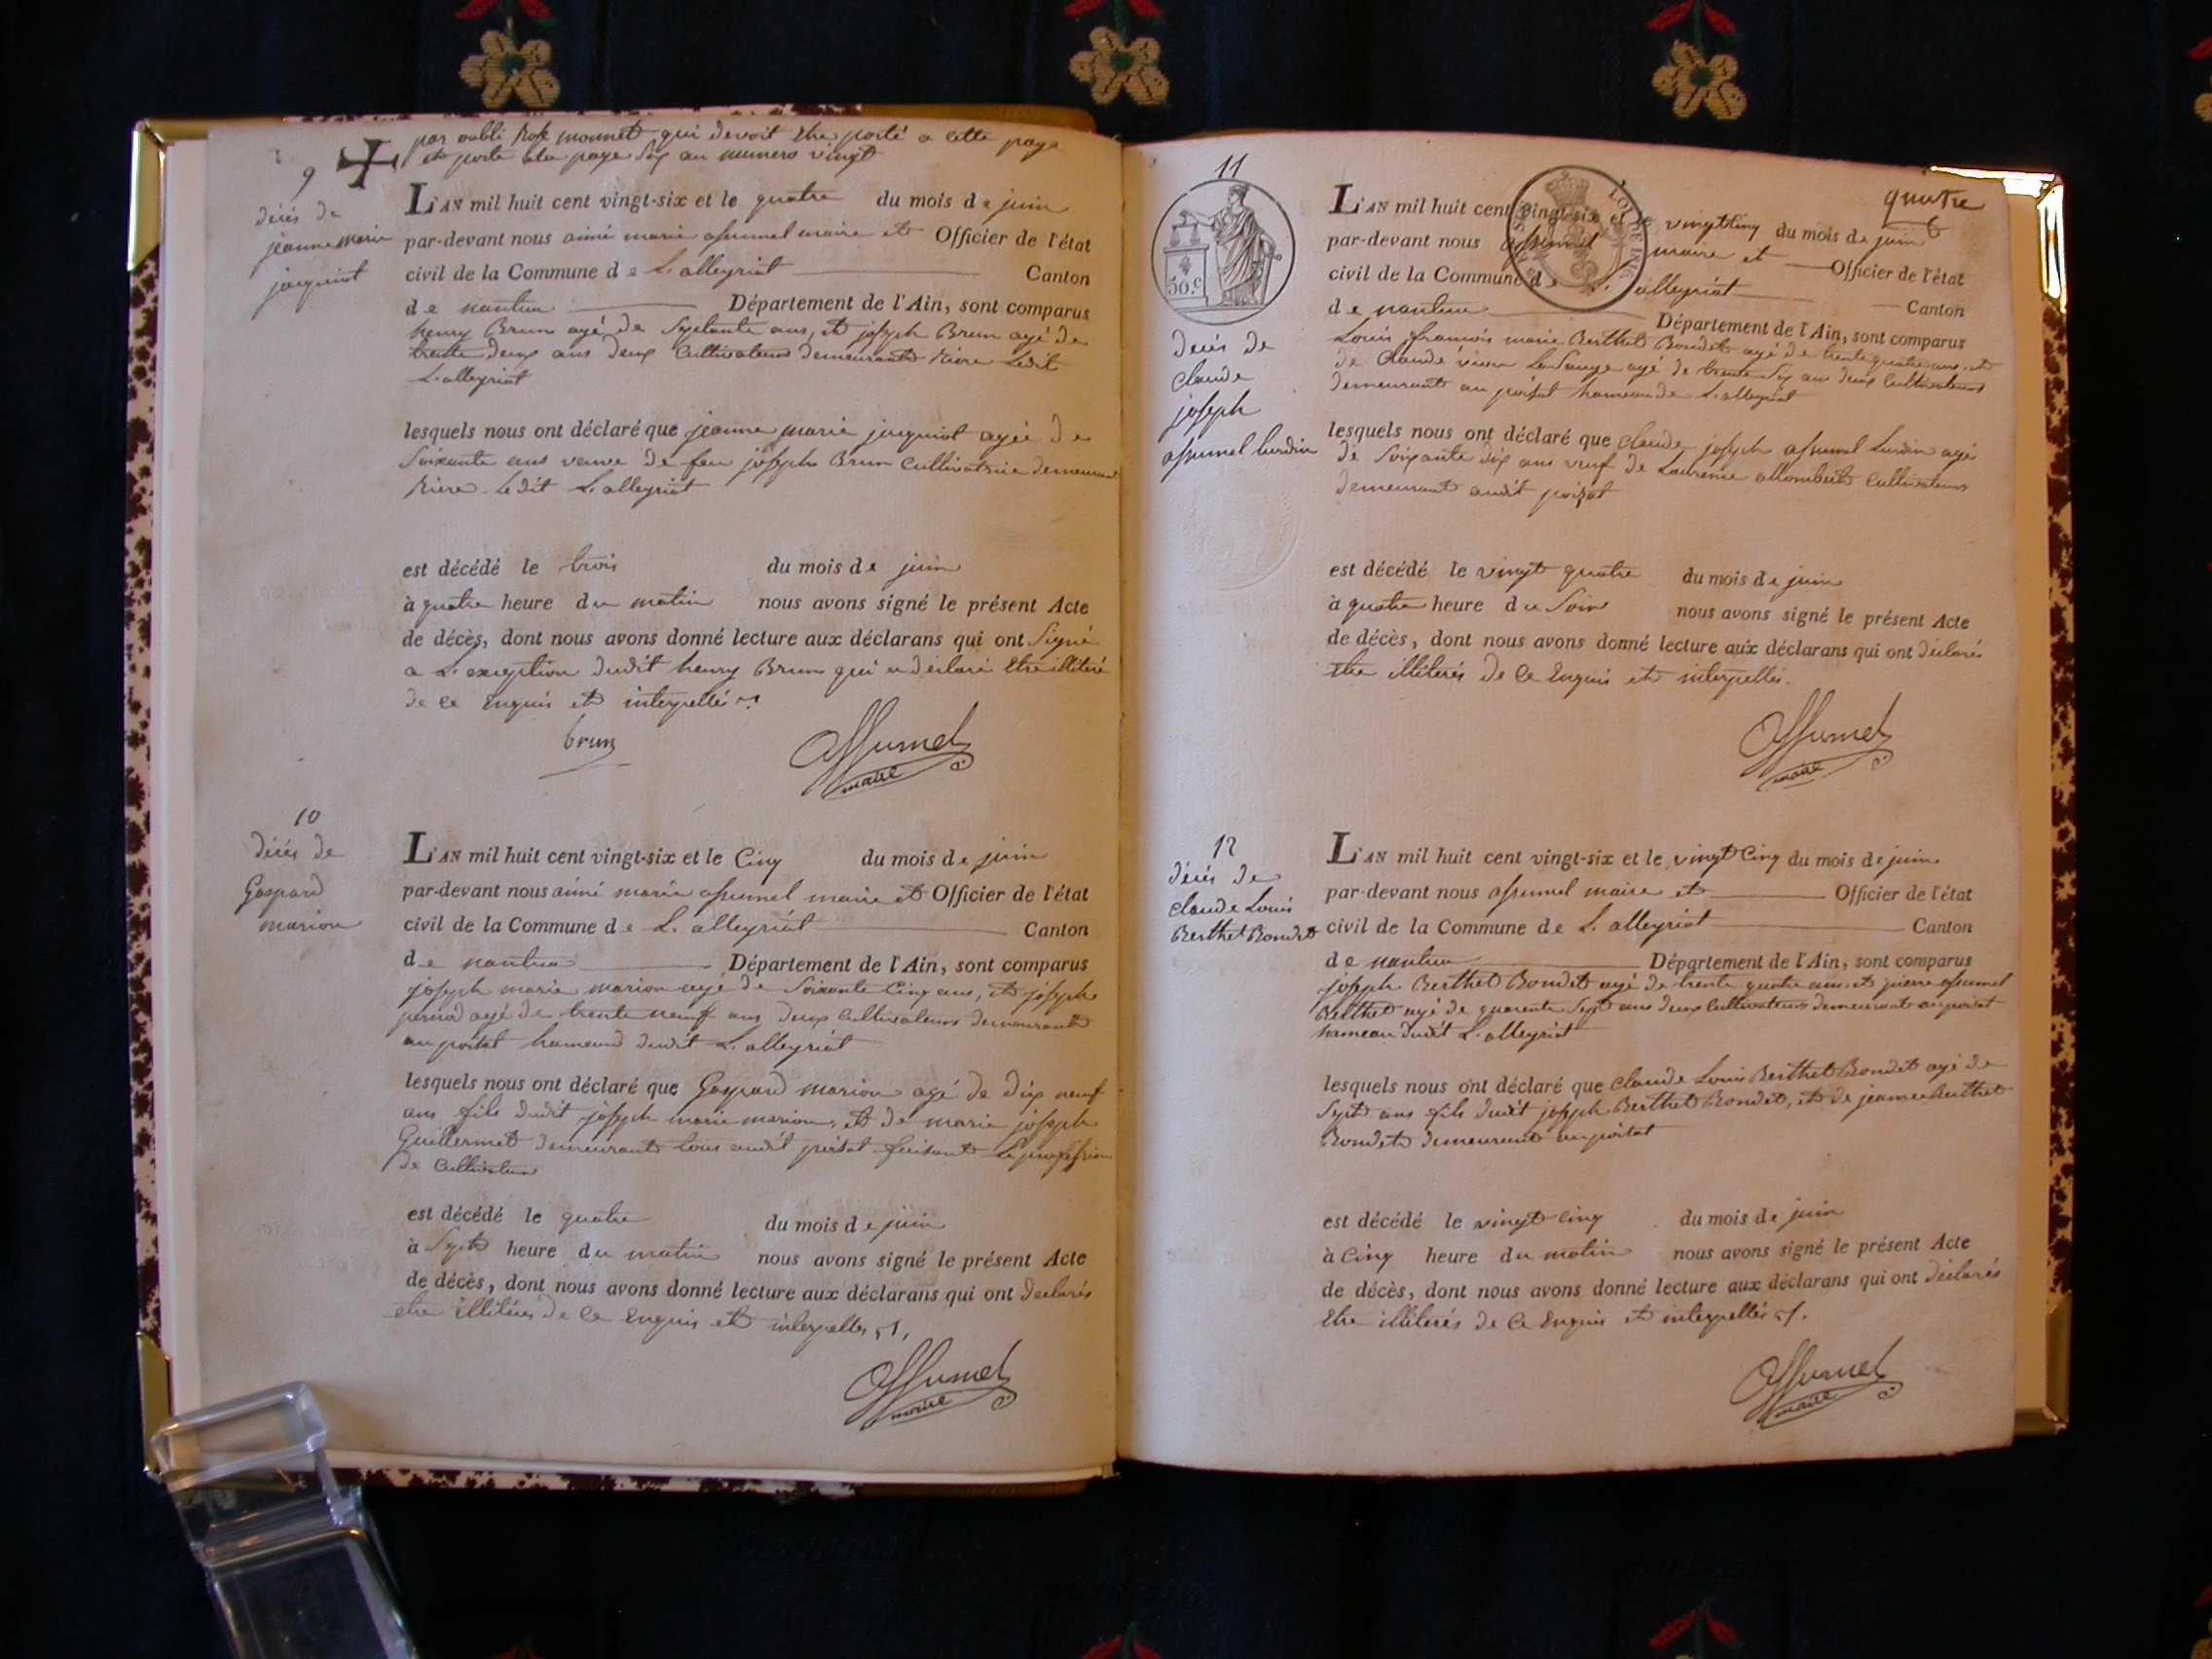 par oubli Rose monnet qui devoit etre porté a cette page
est porté a la page six au numero vingt
9
décés de
jeanne marie
jacquiot
L'AN mil huit cent vingt-six et le quatre du mois de juin
par-devant nous aimé marie assumel maire et Officier de l'état
civil de la Commune de L'alleyriat Canton
de nantua Département de l'Ain, sont comparus
henry Brun agé de Septante ans, et joseph Brun agé de
trente deux ans deux Cultivateurs demeurants Riere Ledit
L'alleyriat
lesquels nous ont déclaré que jeanne marie jacquiot agée de
Soixante ans veuve de feu joseph Brun Cultivatrice demeurant
Riere Ledit L'alleyriat
est décédé le trois du mois de juin
à quatre heure du matin nous avons signé le présent Acte
de décès, dont nous avons donné lecture aux déclarans qui ont Signé
a L'exception dudit henry Brun qui a déclaré Etre illiteré
de ce Enquis et interpellés
brun
Assumel
maire
10
décés de
Gaspard
marion
L'AN mil huit cent vingt-six et le Cinq du mois de juin
par-devant nous aimé marie assumel maire et Officier de l'état
civil de la Commune de L'alleyriat Canton
de nantua Département de l'Ain, sont comparus
joseph marie marion agé de Soixante Cinq ans, et joseph
perrod agé de trente neuf ans deux Cultivateurs demeurants
au poisat hameau dudit L'alleyriat
lesquels nous ont déclaré que Gaspard marion agé de dix neuf
ans fils dudit joseph marie marion, et de marie joseph
Guillermet demeurants tous audit poisat faisant la profession
de Cultivateur
est décédé le quatre du mois de juin
à Sept heure du matin nous avons signé le présent Acte
de décès, dont nous avons donné lecture aux déclarans qui ont declarés
etre illiterés de ce Enquis et interpellés
Assumel
maire
quatre
11
50.c
décés de
Claude
joseph
assumel lurdin
L'AN mil huit cent vingt-six et le vingt Cinq du mois de juin
par-devant nous assumel maire et Officier de l'état
civil de la Commune de L'alleyriat Canton
de nantua Département de l'Ain, sont comparus
Louis françois marie Berthet Bondet agé de trente quatre ans, et
de Claude agé de trente Six ans deux Cultivateurs
demeurants au poisat hameau de L'alleyriat
lesquels nous ont déclaré que Claude joseph assumel Lurdin agé
de Soixante dix ans veuf de Laurence allombert Cultivateur
demeurant audit poisat
est décédé le vingt quatre du mois de juin
à quatre heure du Soir nous avons signé le présent Acte
de décès, dont nous avons donné lecture aux déclarans qui ont déclarés
etre illiterés de ce Enquis et interpellés.
Assumel
maire
12
décés de
claude Louis
Berthet Bondet
L'AN mil huit cent vingt-six et le vingt Cinq du mois de juin
par-devant nous assumel maire et Officier de l'état
civil de la Commune de L'alleyriat Canton
de nantua Département de l'Ain, sont comparus
joseph Berthet Bondet agé de trente quatre ans et pierre assumel
Berthet agé de quarente Sept ans deux Cultivateurs demeurant au poisat
hameau dudit L'alleyriat
lesquels nous ont déclaré que Claude Louis Berthet Bondet agé de
Sept ans fils dudit joseph Berthet Bondet, et de jeanne Berthet
Bondet demeurant au poisat
est décédé le vingt cinq du mois de juin
à Cinq heure du matin nous avons signé le présent Acte
de décès, dont nous avons donné lecture aux déclarans qui ont déclarés
Etre illiterés de ce Enquis et interpellés
Assumel
maire